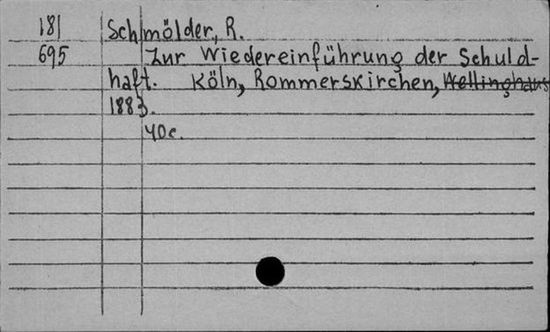 181 Schmölder, R.
695 Zur Wiedereinführung der Schuld-
haft. Köln, Rommerskirchen, Wellinghaus
1883.
40e.